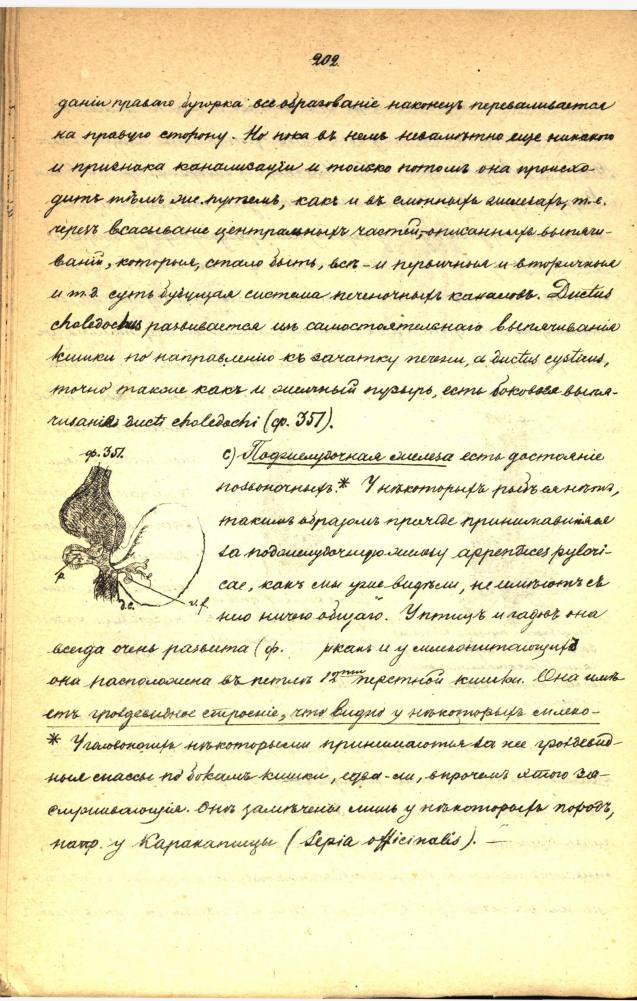 202
даніи праваго бугорка все образованіе наконецъ переваливается
на правую сторону. Но пока въ немъ незамѣтно еще никакого
и признака канализаціи и только потомъ она происхо-
дитъ тѣмъ же путемъ, какъ и въ слюнныхъ железахъ, т.е.
черезъ всасываніе центральныхъ частей, описанныхъ выпячи-
ваній, которыя, стало быть, всѣ – и первичныя и вторичныя
и т.д. суть будущая система печеночныхъ каналовъ. Ductus
choledochus развивается изъ самостоятельнаго выпячиванія
кишки по направленію къ зачатку печени, а ductus cysticus,
точно также какъ и желчный пузырь, есть боковое выпя-
чиваніе ducti choledochi (ф. 351).
ф. 351.
с) Поджелудочная железа есть достояніе
позвоночныхъ.* У нѣкоторыхъ рыбъ ея нѣтъ,
такимъ образомъ прежде принимавшіяся
за поджелудочную железу appendices pylori-
cae, какъ мы уже видѣли, не имѣютъ съ
нею ничего общаго. У птицъ и гадовъ она
p.
d.c.
v.f.
всегда очень развита (ф. какъ и у млекопитающихъ
она расположена въ петлѣ 12ти перстной кишки. Она имѣ-
етъ гроздевидное строеніе, что видно у нѣкоторыхъ млеко-
* У головоногихъ нѣкоторыми принимаются за нее гроздевид-
ныя массы по бокамъ кишки, едва-ли, впрочемъ этого за-
служивающія. Онѣ замѣчены лишь у нѣкоторыхъ породъ,
напр. у Каракатицы (Sepia officinalis). –